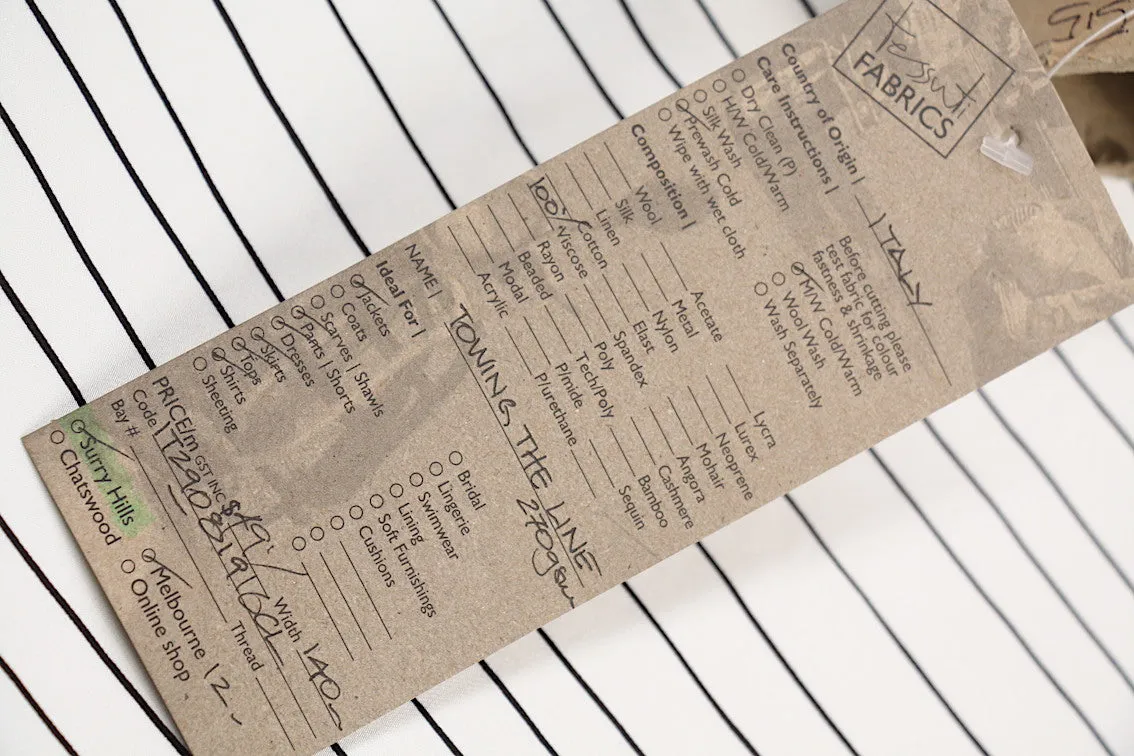 Tessuti
FABRICS
Country of Origin | ITALY
Care Instructions |
Dry Clean (P)
H/W Cold/Warm
Silk Wash
Prewash Cold
Wipe with wet cloth
Before cutting please
test fabric for colour
fastness & shrinkage
M/W Cold/Warm
Wool Wash
Wash Separately
Composition |
Wool
Silk
Linen
100% Cotton
Viscose
Rayon
Beaded
Modal
Acrylic
Acetate
Metal
Nylon
Elast
Spandex
Poly
Tech/Poly
P/mide
P/urethane
Lycra
Lurex
Neoprene
Mohair
Angora
Cashmere
Bamboo
Sequin
NAME | TOWING THE LINE
270gsm
Ideal For |
Jackets
Coats
Scarves | Shawls
Pants | Shorts
Dresses
Skirts
Tops
Shirts
Sheeting
Bridal
Lingerie
Swimwear
Lining
Soft Furnishings
Cushions
PRICE/m GST INC $49. Width 140
Code Thread
Bay #
Surry Hills
Chatswood
Melbourne 12
Online shop